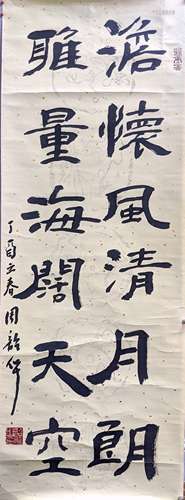 澹懷風清月朗
雅量海闊天空
丁酉之春周韶華